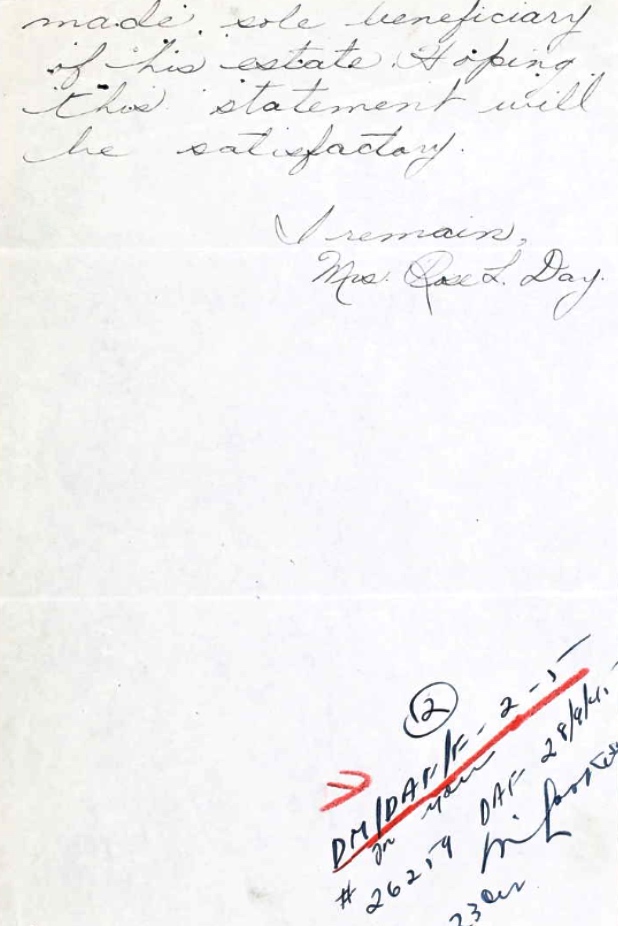 made sole beneficiary
of his estate. Hoping
this statement will
be satisfactory.
I remain,
Mrs. Rose L. Day.
2
DM/DAF/F-2-5
# 26259 DAF 28/9/4
23 Oct